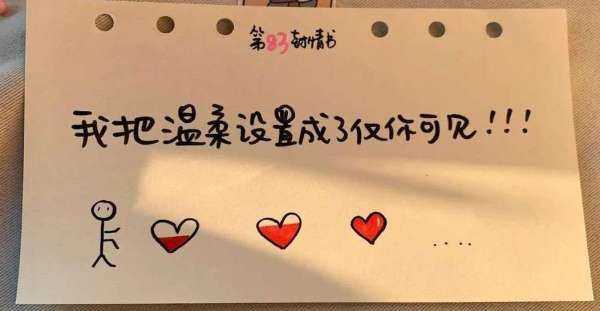 第83封情书
我把温柔设置成了仅你可见!!!
....